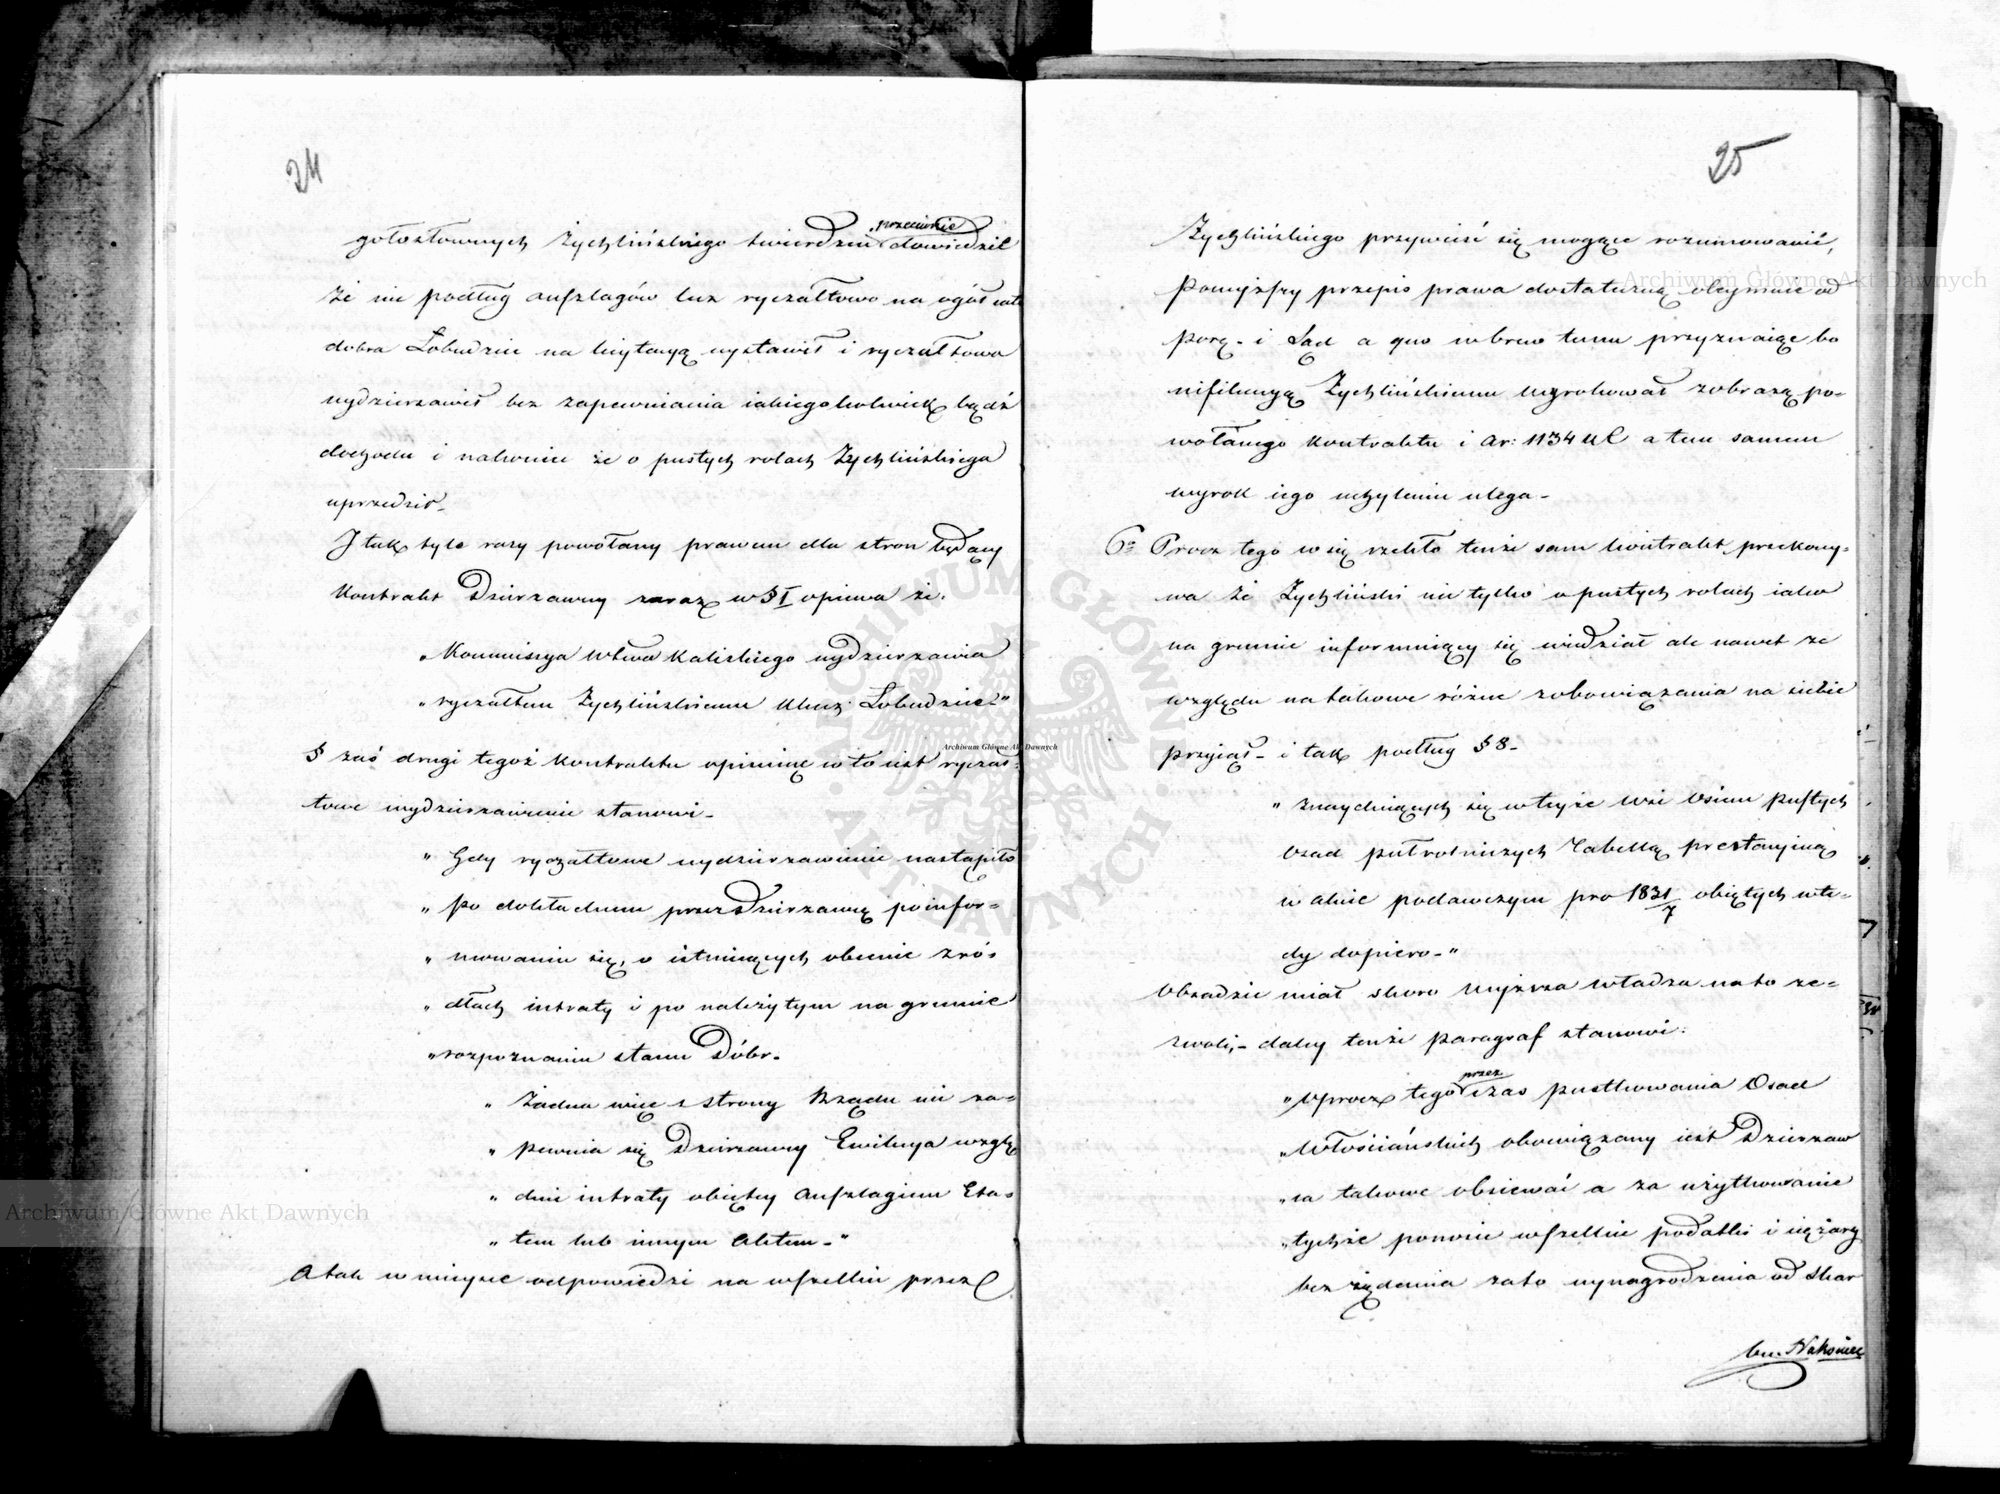 24
gołosłownych Żychlińskiego twierdzeń przeciwnie dowiedził
że nie podług anszlagów lecz ryczałtowo na ogół całe
dobra Łobudzice na licytacyą wystawił i ryczałtowo
wydzierżawił bez zapewniania iakiegokolwiek bądź
dochodu i nakoniec że o pustych rolach Żychlińskiego
uprzedził.
I tak tyle razy powołany prawem dla stron będący
Kontrakt Dzierżawny zaraz w § I opiewa że.
„Kommissya Wtwa Kaliskiego wydzierżawia
„ryczałtem Żychlińskiemu Klucz Łobudzice"
§ zaś drugi tegoż Kontraktu opiniuę w to iest ryczał-
towe wydzierżawienie stanowi.
„Gdy ryczałtowe wydzierżawienie nastąpiło
„Po dokładnem przez Dzierżawcę poinfor-
„mowaniu się, o istnieiących obecnie źró-
„dłach intraty i po należytym na gruncie
„rozpoznaniu stanu Dóbr.
„Żadna więc z strony Rządu nie za-
„pewnia się Dzierżawcy Ewikcya wzglę
„dnie intraty obiętey Anszlagiem Eta-
„tem lub innym Aktem."
A tak w mieysce odpowiedzi na wszelkie przez
25
Żychlińskiego przywieść się mogące rozumowanie,
Powyższy przepis prawa dostateczną obeymuie od
porę - i Sąd a quo wbrew temu przyznaiąc bo
nifikacyą Żychlińskiemu wyrokował z obrazą po-
wołanego Kontraktu i Ar: 1134 KC a tem samem
wyrok iego uchyleniu ulega -
6o Procz tego w się rzekło tenże sam kontrakt przekony-
wa że Żychliński nie tylko o pustych rolach iako
na gruncie informuiący się wiedział ale nawet ze
względu na takowe różne zobowiązania na siebie
przyiął - i tak podług § 8 -
„znayduiących się w teyże wsi Osiem pustych
Osad półrolniczych Tabellą prestacyiną
w akcie podawczym pro 1831/7 obiętych wte-
dy dopiero -"
Obsadzić miał skoro wyższa władza na to ze-
zwoli, - daley tenże paragraf stanowi:
„Oprocz tego przez czas pustkowania Osad
„Włościańskich obowiązany iest Dzierżaw
„ca takowe obsiewać a za użytkowanie
„tychże ponosić wszelkie podatki i ciężary
bez żądania za to wynagrodzenia od Skar
bu. Nakoniec
Archiwum Główne Akt Dawnych
Archiwum Główne Akt Dawnych
Archiwum Główne Akt Dawnych
ARCHIWUM GŁÓWNE AKT DAWNYCH